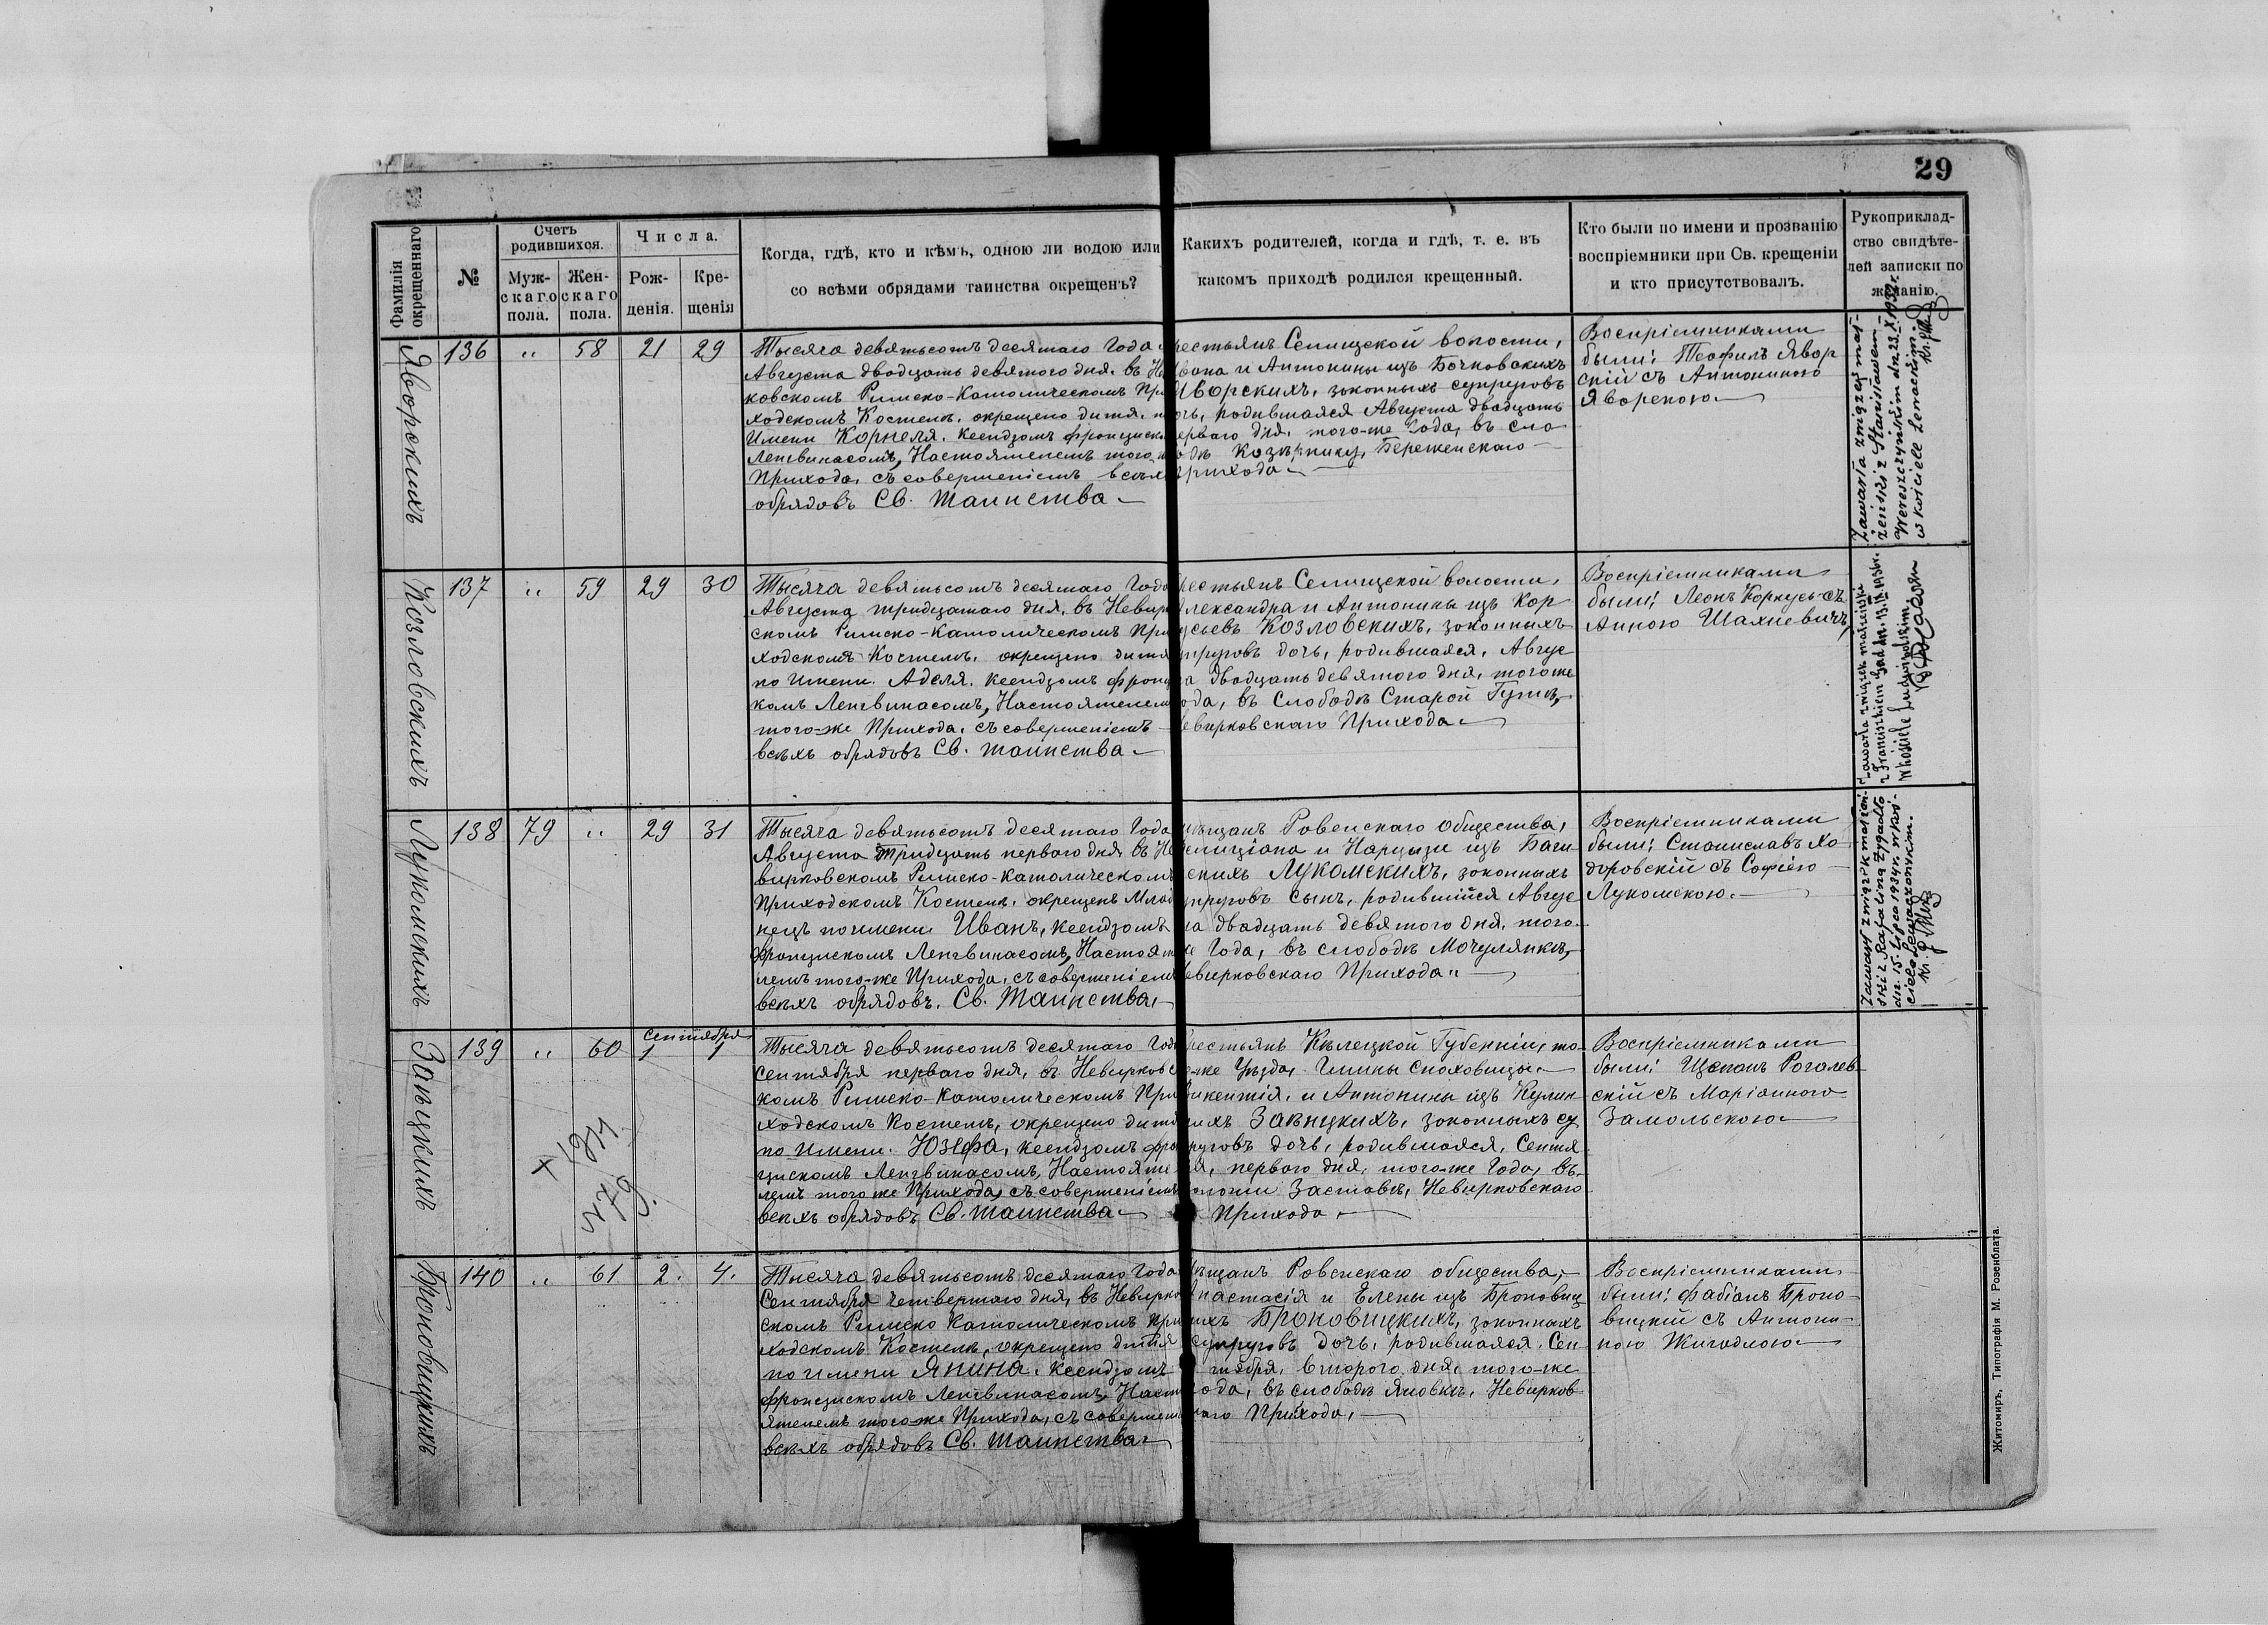 29
Фамилія
окрещеннаго
№
Счетъ
родившихся.
Муж-
скаго
пола.
Жен-
скаго
пола.
Числа.
Рож-
денія.
Кре-
щенія
Когда, гдѣ, кто и кѣмъ, одною ли водою или
со всѣми обрядами таинства окрещенъ?
Какихъ родителей, когда и гдѣ, т. е. въ
какомъ приходѣ родился крещенный.
Кто были по имени и прозванію
воспріемники при Св. крещеніи
и кто присутствовалъ.
Рукоприклад-
ство свидѣте-
лей записки по
желанію.
Яворскихъ
136 „ 58 21 29
Тысяча девятьсотъ десятаго Года
Августа двадцать девятого дня. въ Не
ковскомъ Римско-Католическомъ При
ходскомъ Костелѣ. окрещено дитя. п
Имени Корнеля. Ксендзомъ Францискo
Ленгвинасомъ, Настоятелемъ того ж
Прихода, съ совершеніемъ всѣхъ
обрядовъ Св. Таинства
рестьянъ Селищской волости,
вана и Антонины изъ Бочковскихъ
Яворскихъ, законныхъ супруговъ
очь, родившаяся Августа двадцать
ерваго дня. того-же Года, въ сло
одѣ Береженскаго
Прихода
Воспріемниками
были: Теофилъ Явор
скій съ Антониною
Яворскою
Zawarła związek mał-
żeński z Stanisławem
Wereszczyńskim dn. 23. X 1932 r.
w kościele Lenackim.
Козловскихъ
137 „ 59 29 30
Тысяча девятьсотъ десятаго Года
Августа тридцатаго дня, въ Невир
скомъ Римско-Католическомъ При
ходскомъ Костелѣ. окрещено дитя
по Имени. Аделя. Ксендзомъ Франц
комъ Ленгвинасомъ, Настоятелем
того-же Прихода. съ совершеніемъ
всѣхъ обрядовъ Св. Таинства
рестьянъ Селищской волости,
лександра и Антонины изъ Кор
усьевъ Козловскихъ, законныхъ
упруговъ дочь, родившаяся, Авгус
а двадцать девятого дня, того же
ода, въ Слободѣ Старой Гутѣ,
евирковскаго Прихода
Воспріемниками
были; Леонъ Корнусь съ
Анною Шахневичъ,
Zawarła związek małżeński
z Franciszkiem
w kościele Ludwipolskim
Лукомскихъ
138 79 „ 29 31
Тысяча девятьсотъ десятаго Года
Августа Тридцать перваго дня въ Не
вирковскомъ Римско-Католическомъ
Приходскомъ Костелѣ. окрещенъ Млад
нецъ по имени. Иванъ, Ксендзомъ
Францискомъ Ленгвинасомъ, Настоят
лемъ того-же Прихода, съ совершеніем
всѣхъ обрядовъ. Св. Таинства,
ѣщанъ Ровенскаго Общества,
елиціана и Нарцызи изъ Баги
скихъ Лукомскихъ, законныхъ
упруговъ сынъ, родившійся Авгус
та двадцать девятого дня, того
е Года, въ слободѣ Мочулянкѣ,
евирковскаго Прихода
Воспріемниками
были; Станиславъ Хо
доровскій съ Софіею
Лукомскою.
Zawarł związek małżeń-
ski z Rafaliną Żygadło
dn. 15. lipca 1934 r. w koś-
ciele Lewaczowskim.
Завѣцкихъ
сентября
139 „ 60 1 1
Тысяча девятьсотъ десятаго Года
Сентября перваго дня, въ Невирковс
комъ Римско-Католическомъ При
ходскомъ Костелѣ, окрещено дитя
по Имени. Юзефа, Ксендзомъ Фран
цискомъ Ленгвинасомъ, Настояте
лемъ того же Прихода, съ совершеніемъ
всѣхъ обрядовъ Св. Таинства
рестьянъ Кѣлецкой Губерніи, то
же Уѣзда, Гмины Сноховицы.
икентія. и Антонины изъ Кулин
ихъ Завѣцкихъ, законныхъ су
руговъ дочь, родившаяся, Сентя
я, перваго дня, того-же Года, въ
Заставѣ, Невирковскаго
Прихода
Воспріемниками
были: Щепанъ Рогалев
скій съ Маріанною
Замольскою
Броновицкихъ
140 „ 61 2. 4.
Тысяча девятьсотъ десятаго Года
Сентября четвертаго дня, въ Невирко
скомъ Римско Католическомъ При
ходскомъ Костелѣ, окрещено дитя
по Имени Янина. Ксендзомъ
Францискомъ Ленгвинасомъ, Насто
ятелемъ того-же Прихода, съ соверше
всѣхъ обрядовъ Св. Таинства
ѣщанъ Ровенскаго общества,
настасія и Елены изъ Броновиц
ихъ Броновицкихъ, законныхъ
супруговъ дочь, родившаяся, Сен
тября, второго дня, того-же
ода, въ слободѣ Яновкѣ, Невирков
каго Прихода,
Воспріемниками
были; Фабіанъ Броно-
вицкій съ Антони-
ною Жигадлою
Житомиръ, Типографія М. Розенблата.